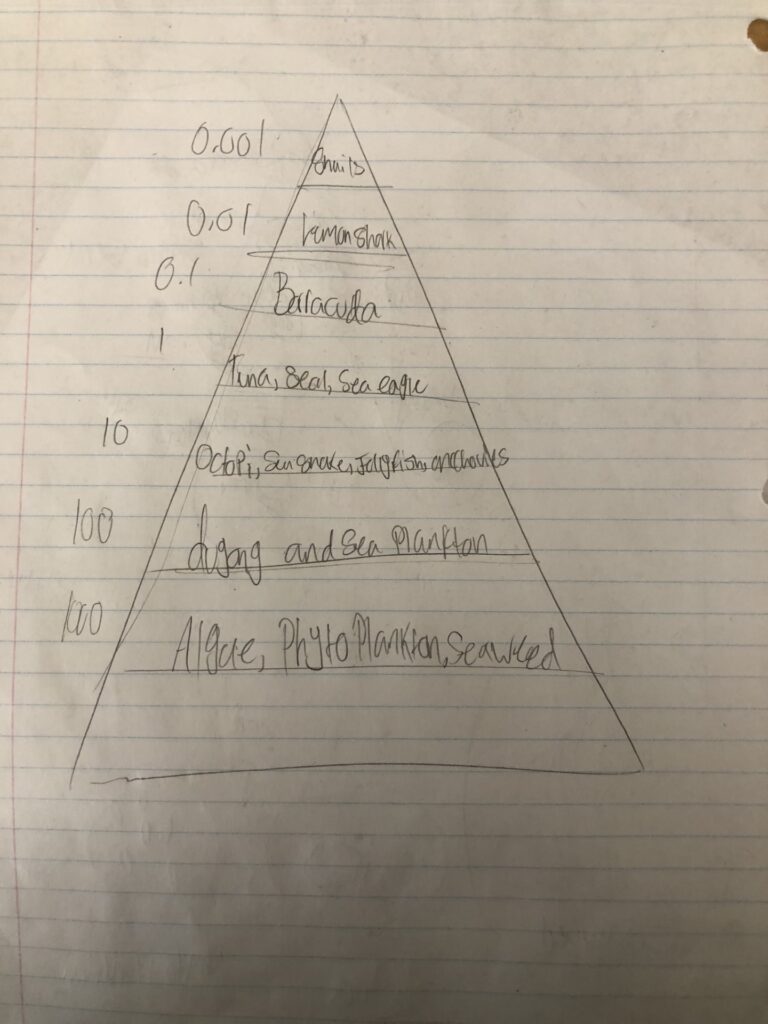 0.001
Snails
0.01
Lemon Shark
0.1
Barracuda
1
Tuna, Seal, Sea eagle
10
Octopi, Sea snake, Jellyfish, anchovies
100
dugong and Sea Plankton
1000
Algae, Phyto Plankton, Seaweed